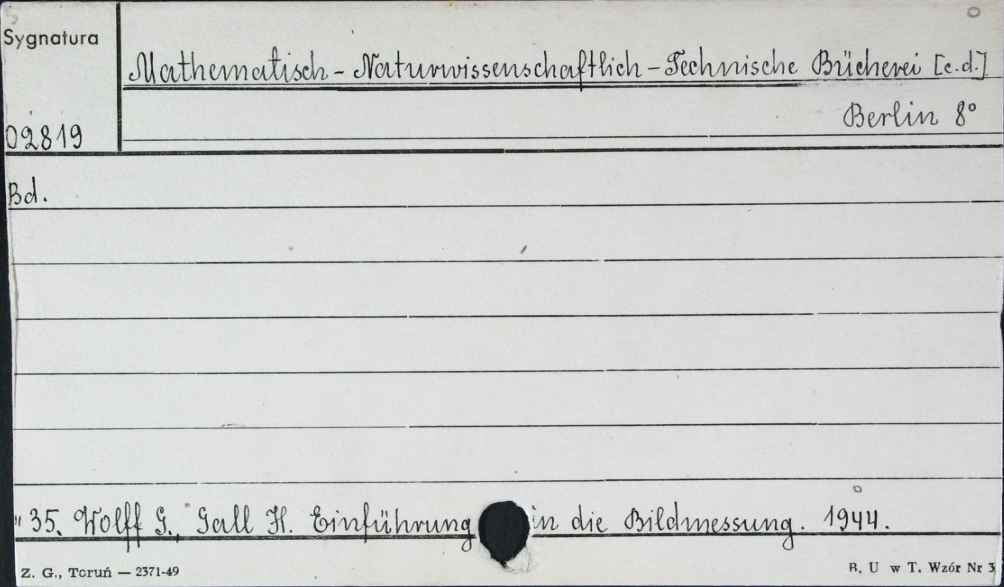 Sygnatura
Mathematisch - Naturwissenschaftlich - Technische Bücherei [c.d.]
Berlin 8°
02819
Bd.
" 35. Wolff G., Gall H. Einführung in die Bildmessung. 1944.
Z. G., Toruń — 2371-49
B. U w T. Wzór Nr 3